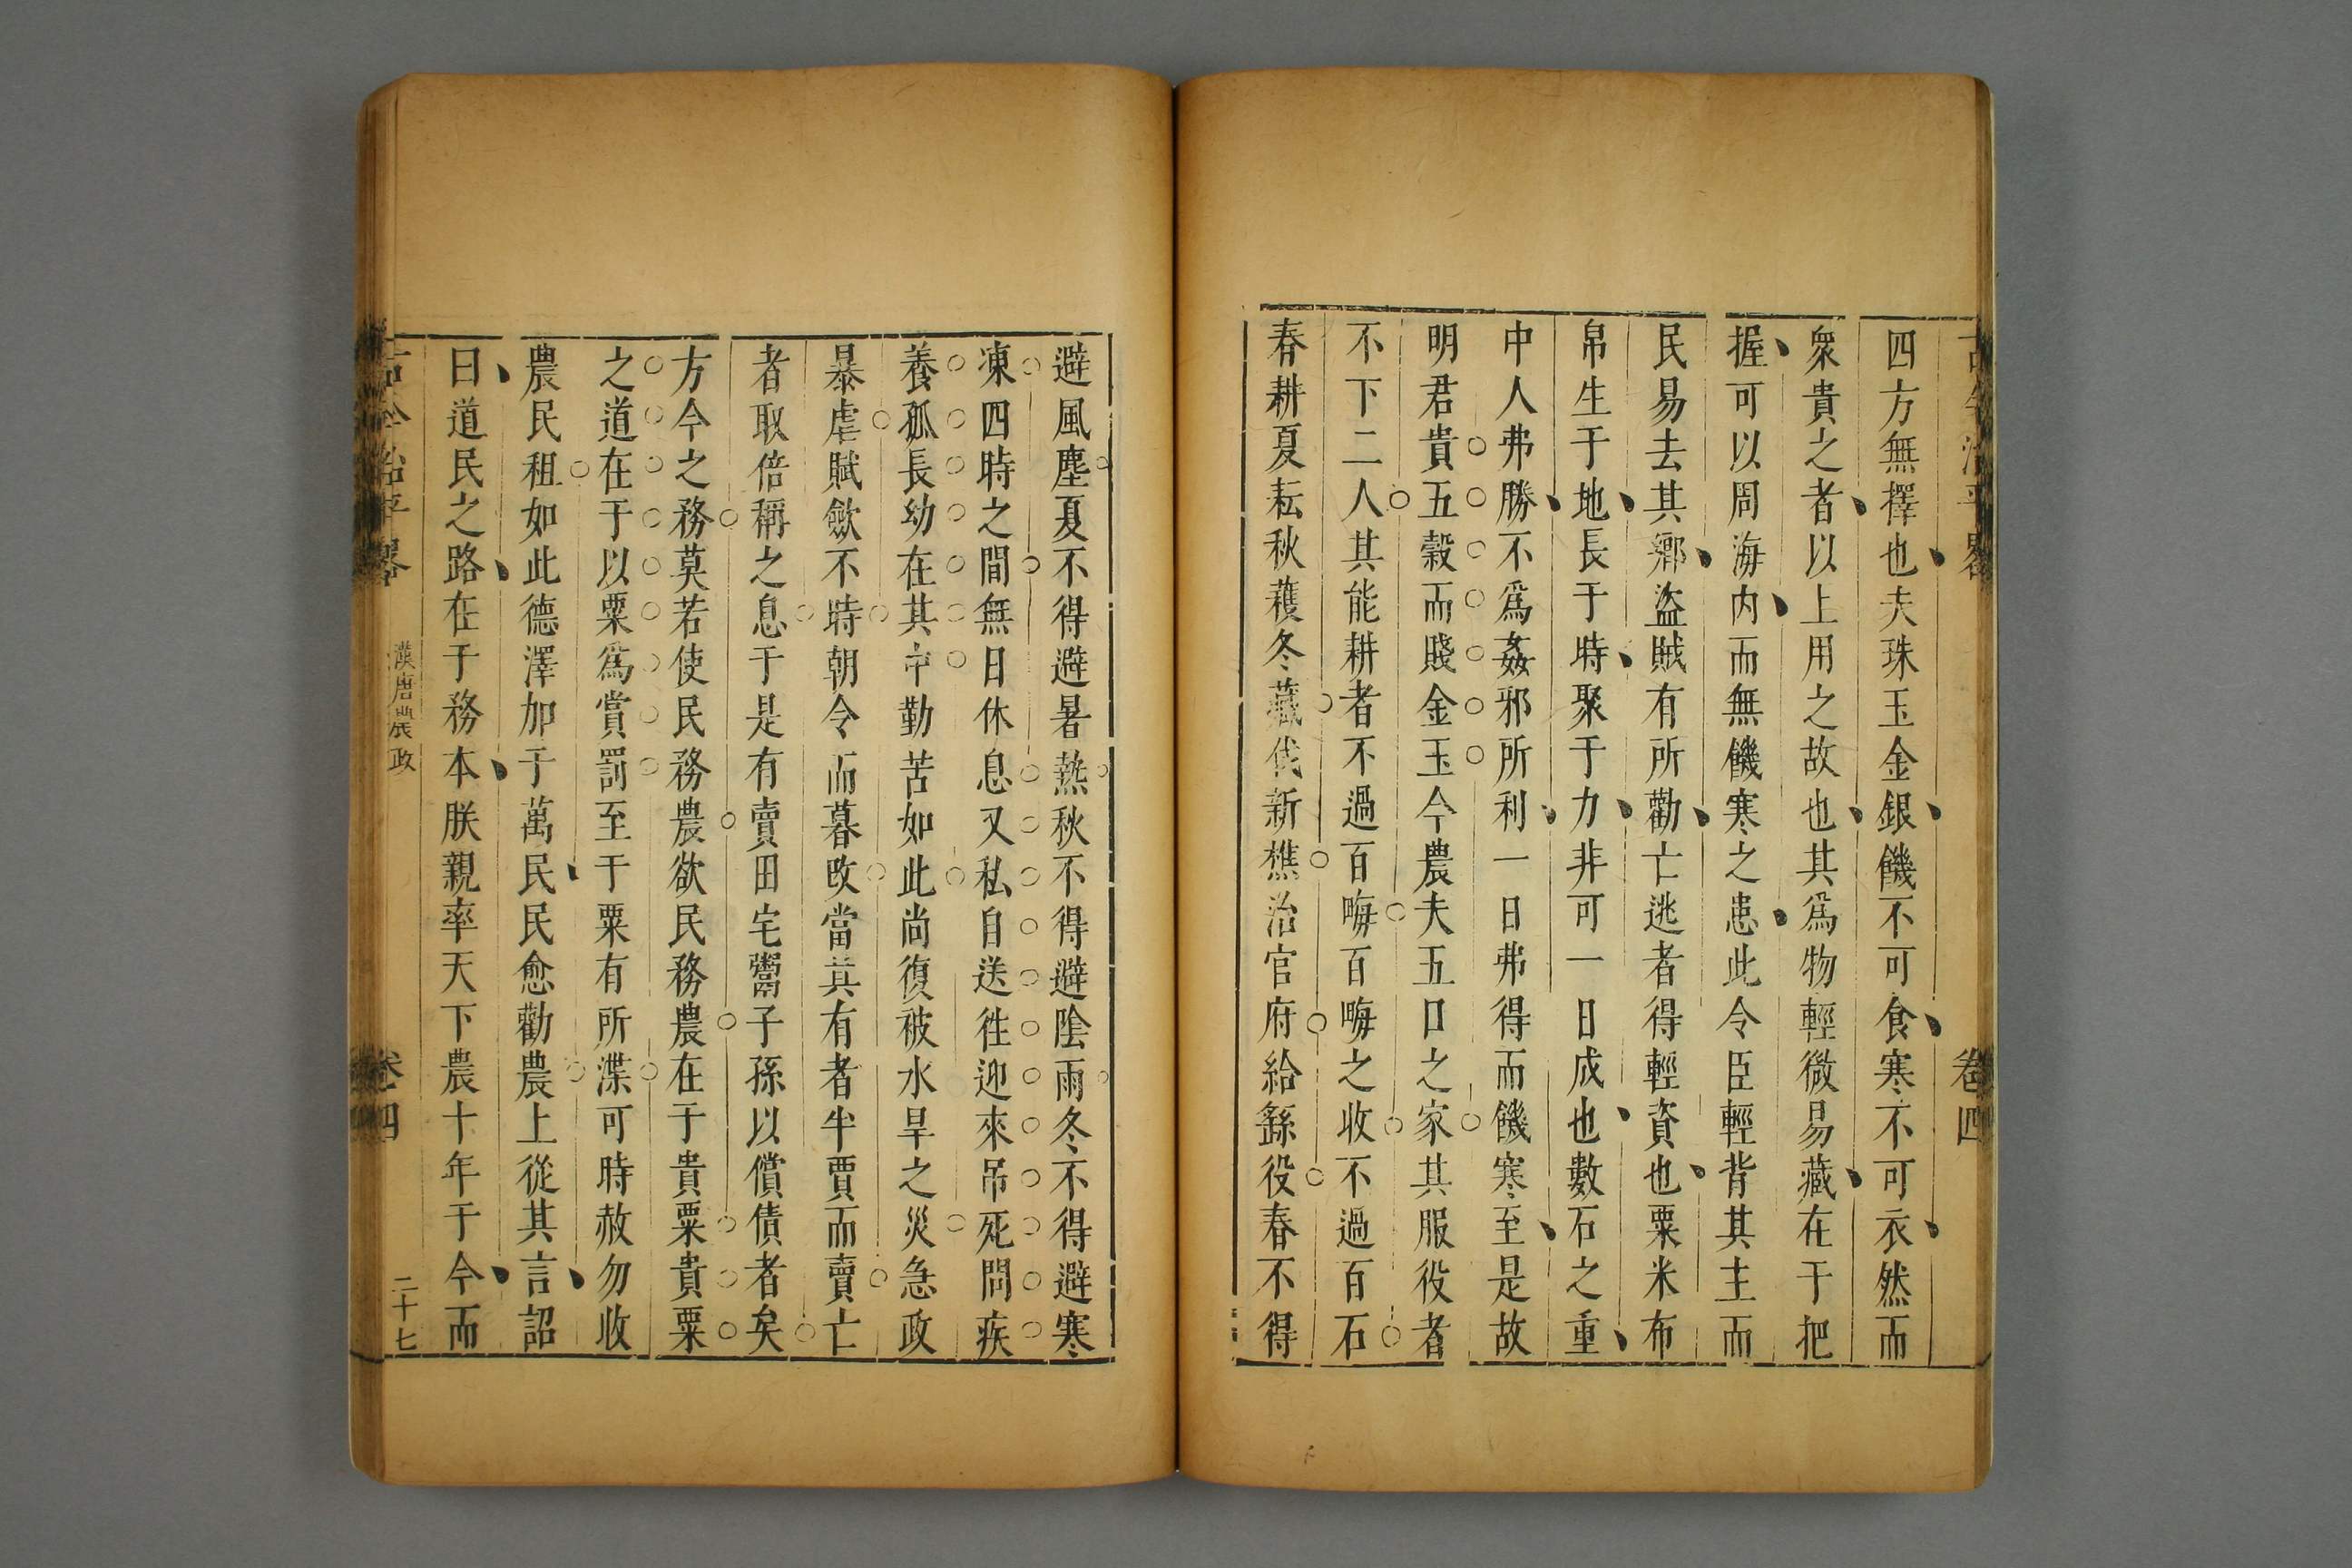 四方無擇也夫珠玉金銀饑不可食寒不可衣然而
衆貴之者以上用之故也其爲物輕微易藏在于把
握可以周海內而無饑寒之患此令臣輕背其主而
民易去其鄉盜賊有所勸亡逃者得輕資也粟米布
帛生于地長于時聚于力非可一日成也數石之重
中人弗勝不爲姦邪所利一日弗得而饑寒至是故
明君貴五穀而賤金玉今農夫五口之家其服役者
不下二人其能耕者不過百畮百畮之收不過百石
春耕夏耘秋穫冬藏伐新樵治官府給繇役春不得
避風塵夏不得避暑熱秋不得避陰雨冬不得避寒
凍四時之間無日休息又私自送徃迎來吊死問疾
養孤長幼在其中勤苦如此尚復被水旱之災急政
暴虐賦歛不時朝令而暮改當其有者半賈而賣亡
者取倍稱之息于是有賣田宅鬻子孫以償債者矣
方今之務莫若使民務農欲民務農在于貴粟貴粟
之道在于以粟爲賞罰至于粟有所渫可時赦勿收
農民租如此德澤加于萬民民愈勸農上從其言詔
曰道民之路在于務本朕親率天下農十年于今而
古今治平畧
漢唐農政
卷四
二十七